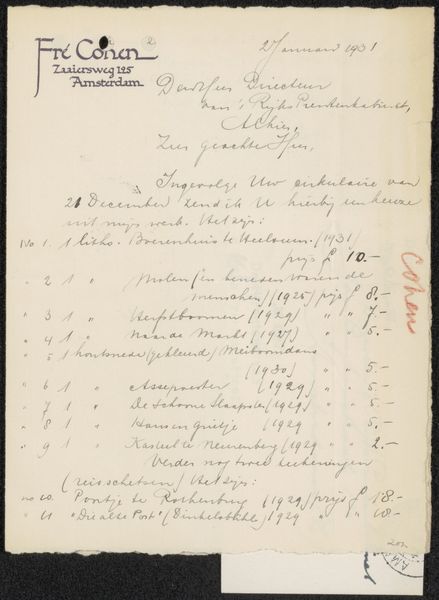 Fré Cohen
Zaaiersweg 125
Amsterdam
2 Januari 1931
Den Heer Directeur
van 's Rijks Prentenkabinet,
Alhier,
Zeer geachte Heer,
Ingevolge Uw cirkulaire van
21 December zend ik U hierbij een keuze
uit mijn werk. Het zijn:
No 1. 1 litho. Boerenhuis te Heeloum. (1931)
prijs ƒ 10.-
" 2 1 " Molen (in beneden waren de
menschen) (1925) prijs ƒ 8.-
" 3 1 " Herfstboomen (1929) " " 7.-
" 4 1 " Naar de Markt (1927) " " 5.-
" 5 1 houtsnede (gekleurd) Meiboomdans
(1930) " " 5.-
" 6 1 " Assepoester (1929) " " 5.-
" 7 1 " De Schoone Slaapster (1929) " 5.-
" 8 1 " Hans en Grietje (1929 " " 5.-
" 9 1 " Kasteel te Neurenberg (1929 " " 2.-
Verder nog twee teekeningen
(reisschetsen) Het zijn:
no 10. Poortje te Rothenburg (1929) prijs ƒ 18.-
" 11 "Die alte Post" (Dinkelsbühl) 1929 " "
Cohen